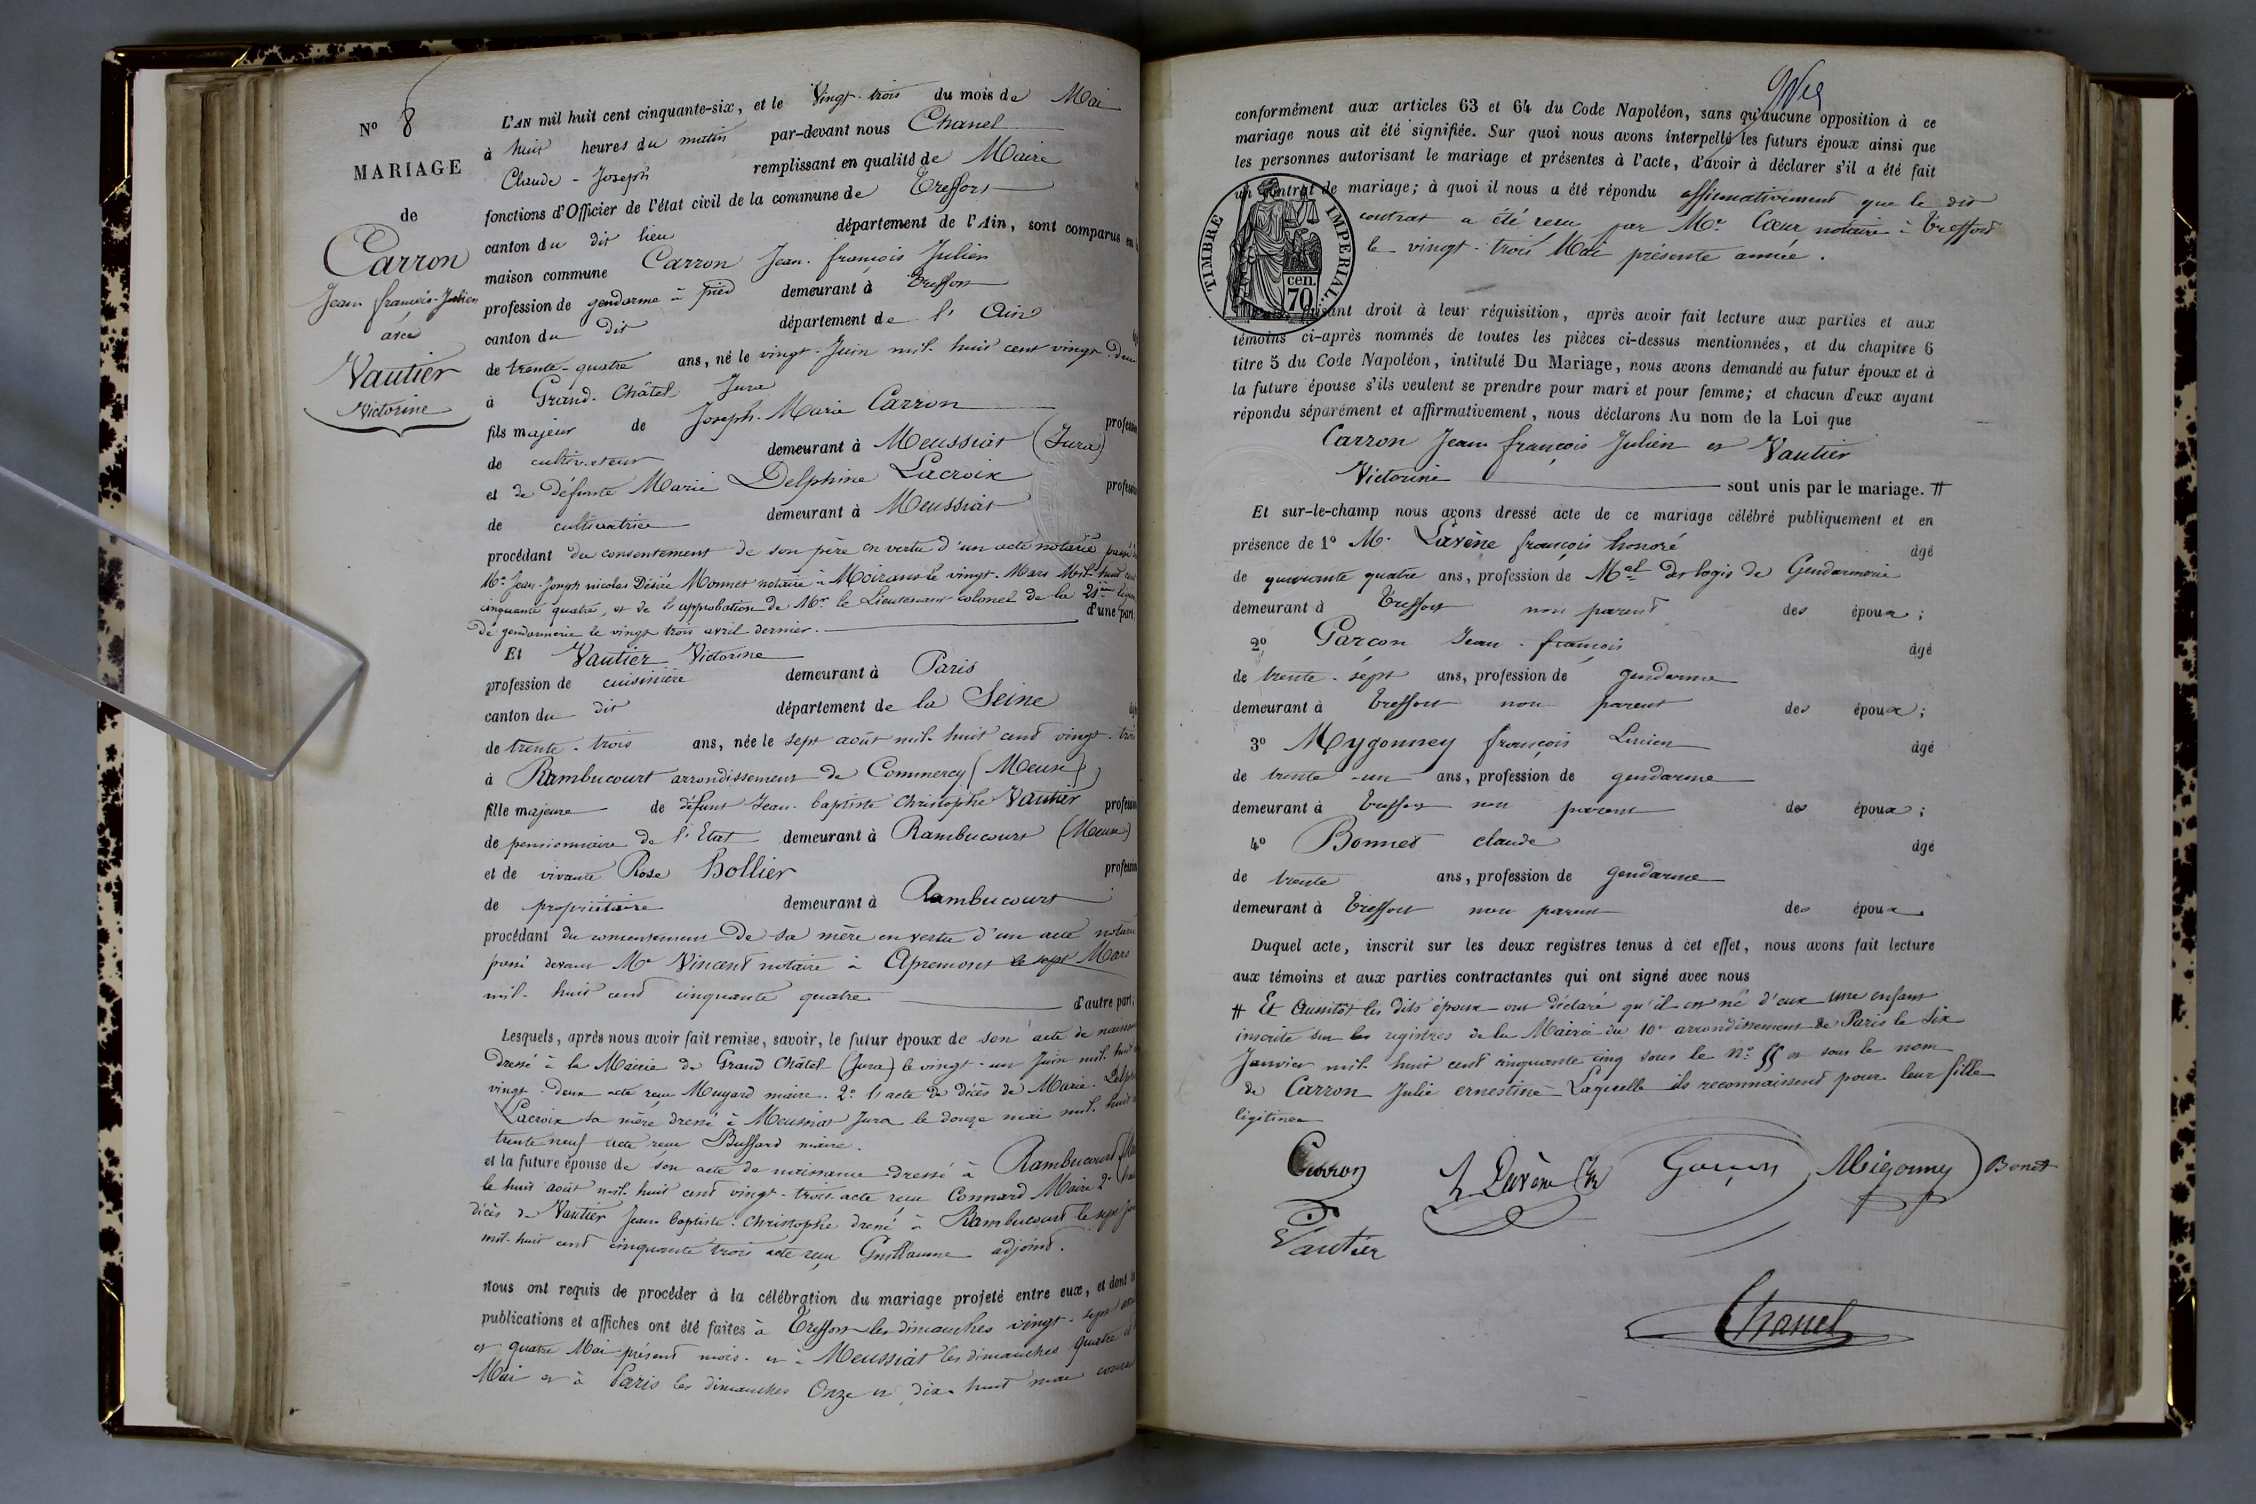 N° 8
MARIAGE
de
Carron
Jean françois-Julien
avec
Vautier
Victorine
L'AN mil huit cent cinquante-six, et le Vingt-trois du mois de Mai
à huit heures du matin par-devant nous Chanel
Claude-Joseph remplissant en qualité de Maire
fonctions d'Officier de l'état civil de la commune de Treffort
canton du dit lieu département de l'Ain, sont comparus en
maison commune Carron Jean-françois Julien
profession de gendarme à pied demeurant à Treffort
canton du dit département de l'Ain
de trente-quatre ans, né le vingt-Juin mil-huit cent vingt-deux
à Grand-Châtel Jura
fils majeur de Joseph-Marie Carron profession
de cultivateur demeurant à Meussiat (Jura)
et de défunte Marie Delphine Lacroix profession
de cultivatrice demeurant à Meussiat
procédant du consentement de son père en vertu d'un acte notarié passé
Me Jean-Joseph nicolas Désiré Monnet notaire à Moirans le vingt-Mars Mil-huit cent
cinquante quatre, et de l'approbation de Mr le Lieutenant colonel de la 21ème légion
de gendarmerie le vingt trois avril dernier. d'une part,
Et Vautier Victorine
profession de cuisinière demeurant à Paris
canton du dit département de la Seine
de trente-trois ans, née le sept août mil-huit cent vingt-trois
à Rambucourt arrondissement de Commercy (Meuse)
fille majeure de défunt Jean-baptiste Christophe Vautier profession
de pensionnaire de l'Etat demeurant à Rambucourt (Meuse)
et de vivante Rose hollier profession
de propriétaire demeurant à Rambucourt
procédant du consentement de sa mère en vertu d'un acte notarié
passé devant Me Vincent notaire à Apremont le sept Mars
mil-huit cent cinquante quatre d'autre part,
Lesquels, après nous avoir fait remise, savoir, le futur époux de son acte de
dressé à la Mairie de Grand Châtel (Jura) le vingt-un Juin mil-huit
vingt-deux acte reçu Muyard maire. 2° l'acte de décès de Marie-
Lacroix sa mère dressé à Meussiat Jura le douze mai mil-huit
trente neuf acte reçu Buffard maire.
et la future épouse de son acte de naissance dressé à Rambucourt
le huit août mil-huit cent vingt-trois acte reçu Connard Maire 2°
décès de Vautier Jean baptiste-Christophe dressé à Rambucourt le sept
mil-huit cent cinquante trois acte reçu Guillaume adjoint.
nous ont requis de procéder à la célébration du mariage projeté entre eux, et dont
publications et affiches ont été faites à Treffort les dimanches vingt-sept
et quatre Mai présent mois-et à Meussiat les dimanches quatre
Mai et à Paris les dimanches Onze et dix-huit mai
conformément aux articles 63 et 64 du Code Napoléon, sans qu'aucune opposition à ce
mariage nous ait été signifiée. Sur quoi nous avons interpellé les futurs époux ainsi que
les personnes autorisant le mariage et présentes à l'acte, d'avoir à déclarer s'il a été fait
un contrat de mariage; à quoi il nous a été répondu affirmativement que le dit
contrat a été reçu par Me Cœur notaire à Treffort
le vingt-trois Mai présente année.
TIMBRE IMPERIAL
cen.
70
Faisant droit à leur réquisition, après avoir fait lecture aux parties et aux
témoins ci-après nommés de toutes les pièces ci-dessus mentionnées, et du chapitre 6
titre 5 du Code Napoléon, intitulé Du Mariage, nous avons demandé au futur époux et à
la future épouse s'ils veulent se prendre pour mari et pour femme; et chacun d'eux ayant
répondu séparément et affirmativement, nous déclarons Au nom de la Loi que
Carron Jean françois Julien et Vautier
Victorine sont unis par le mariage. #
Et sur-le-champ nous avons dressé acte de ce mariage célébré publiquement et en
présence de 1° M. Lavène françois honoré âgé
de quarante quatre ans, profession de Mal des logis de Gendarmerie
demeurant à Treffort non parent des époux;
2° Garçon Jean-françois âgé
de trente-sept ans, profession de gendarme
demeurant à Treffort non parent des époux;
3° Mygonney françois Lucien âgé
de trente-un ans, profession de gendarme
demeurant à Treffort non parent des époux;
4° Bonnet claude âgé
de trente ans, profession de gendarme
demeurant à Treffort non parent des époux
Duquel acte, inscrit sur les deux registres tenus à cet effet, nous avons fait lecture
aux témoins et aux parties contractantes qui ont signé avec nous
# Et Aussitôt les dits époux ont déclaré qu'il est né d'eux une enfant
inscrite sur les registres de la Mairie du 10e arrondissement de Paris le Six
Janvier mil huit cent cinquante cinq sous le N° 55 et sous le nom
de Carron Julie ernestine Laquelle ils reconnaissent pour leur fille
légitime
Carron Lavène Garçon Migonney Bonet
Vautier
Chanel